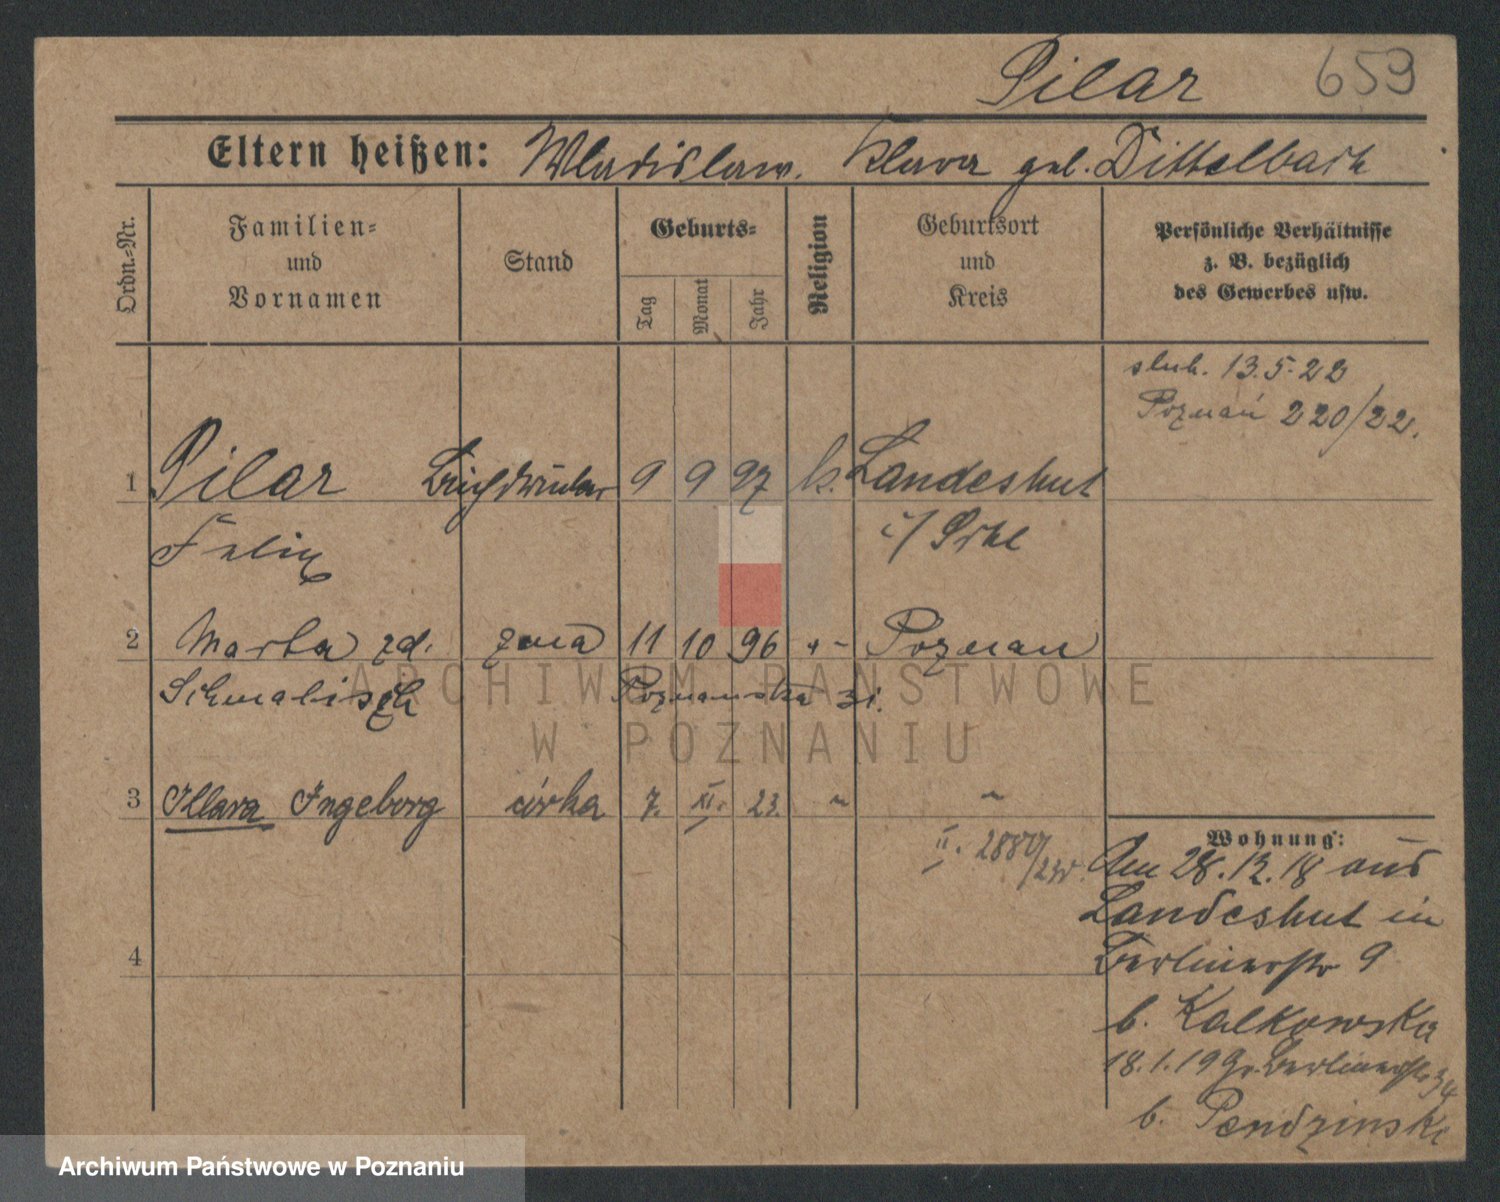 Pilar 659
Eltern heißen: Wladislaw. Klara geb. Dittelbach
Ordn.-Nr.
Familien- und Vornamen
Stand
Geburts-
Tag
Monat
Jahr
Religion
Geburtsort und Kreis
Persönliche Verhältnisse
z. B. bezüglich
des Gewerbes usw.
ślub. 13.5.22
Poznań 220/22.
1 Pilar Buchdrucker 9 9 97 k. Landeshut
Felix i/ Schl
2 Marta zd. żona 11 10 96 Poznań
Schmalisch Poznańska 31.
3 Klara Ingeborg córka 7. XI. 23. " "
II.
Wohnung:
Am 28.12.18 aus
Landeshut in
4 Berlinerstr 9
b. Kalkowska
18.1.19 Gr. Berlinerstr 34
b. Pendzinski
ARCHIWUM PAŃSTWOWE
W POZNANIU
Archiwum Państwowe w Poznaniu